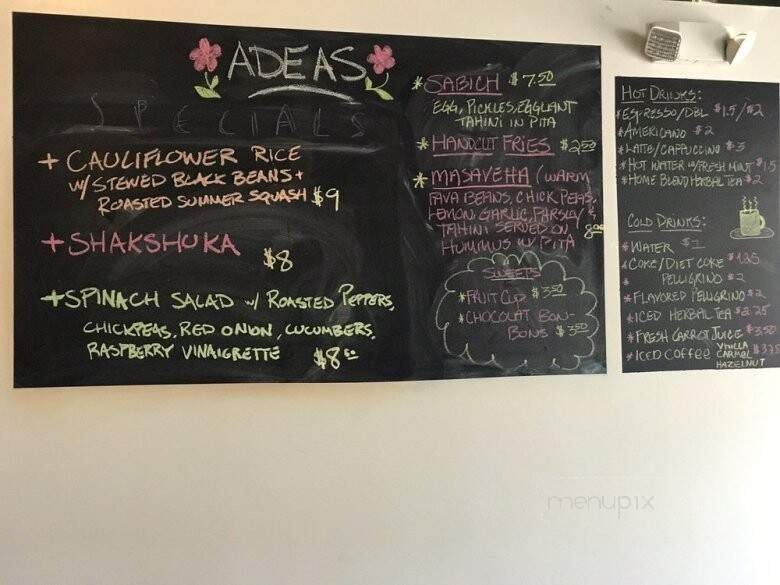 ADEAS
SPECIALS
+ CAULIFLOWER RICE
W/ STEWED BLACK BEANS +
ROASTED SUMMER SQUASH $9
+ SHAKSHUKA $8
+ SPINACH SALAD W/ ROASTED PEPPERS,
CHICKPEAS, RED ONION, CUCUMBERS,
RASPBERRY VINAIGRETTE $8
* SABICH $7.50
EGG, PICKLES, EGGPLANT
TAHINI IN PITA
* HANDCUT FRIES $2.50
* MASAVEHA (WARM
FAVA BEANS, CHICK PEAS,
LEMON, GARLIC, PARSLEY &
TAHINI SERVED ON
HUMMUS W/ PITA
SWEETS
* FRUIT CUP $3.50
* CHOCOLAT BON-
BONS $3.50
HOT DRINKS:
* ESPRESSO/DBL $1.5/$2
* AMERICANO $2
* LATTE/CAPPUCCINO $3
* HOT WATER W/FRESH MINT $1.5
* HOME BLEND HERBAL TEA $2
COLD DRINKS:
* WATER $1
* COKE/DIET COKE $1.25
* PELLIGRINO $2
* FLAVORED PELLIGRINO $2
* ICED HERBAL TEA $2.25
* FRESH CARROT JUICE $3.50
* ICED COFFEE VANILLA
CARMEL
HAZELNUT
menupix